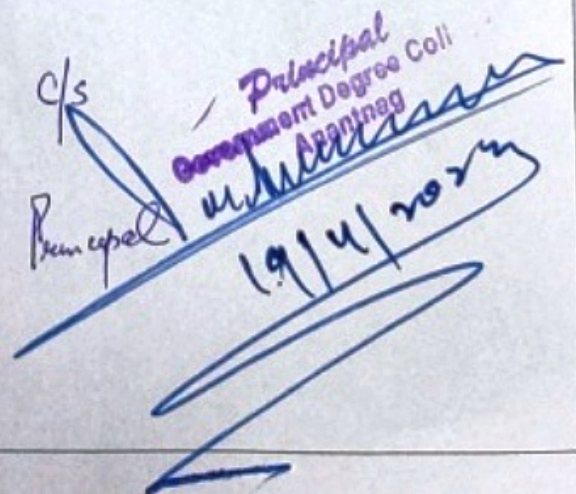 C/s
Principal
Government Degree Coll
Anantnag
Principal
19/4/2023